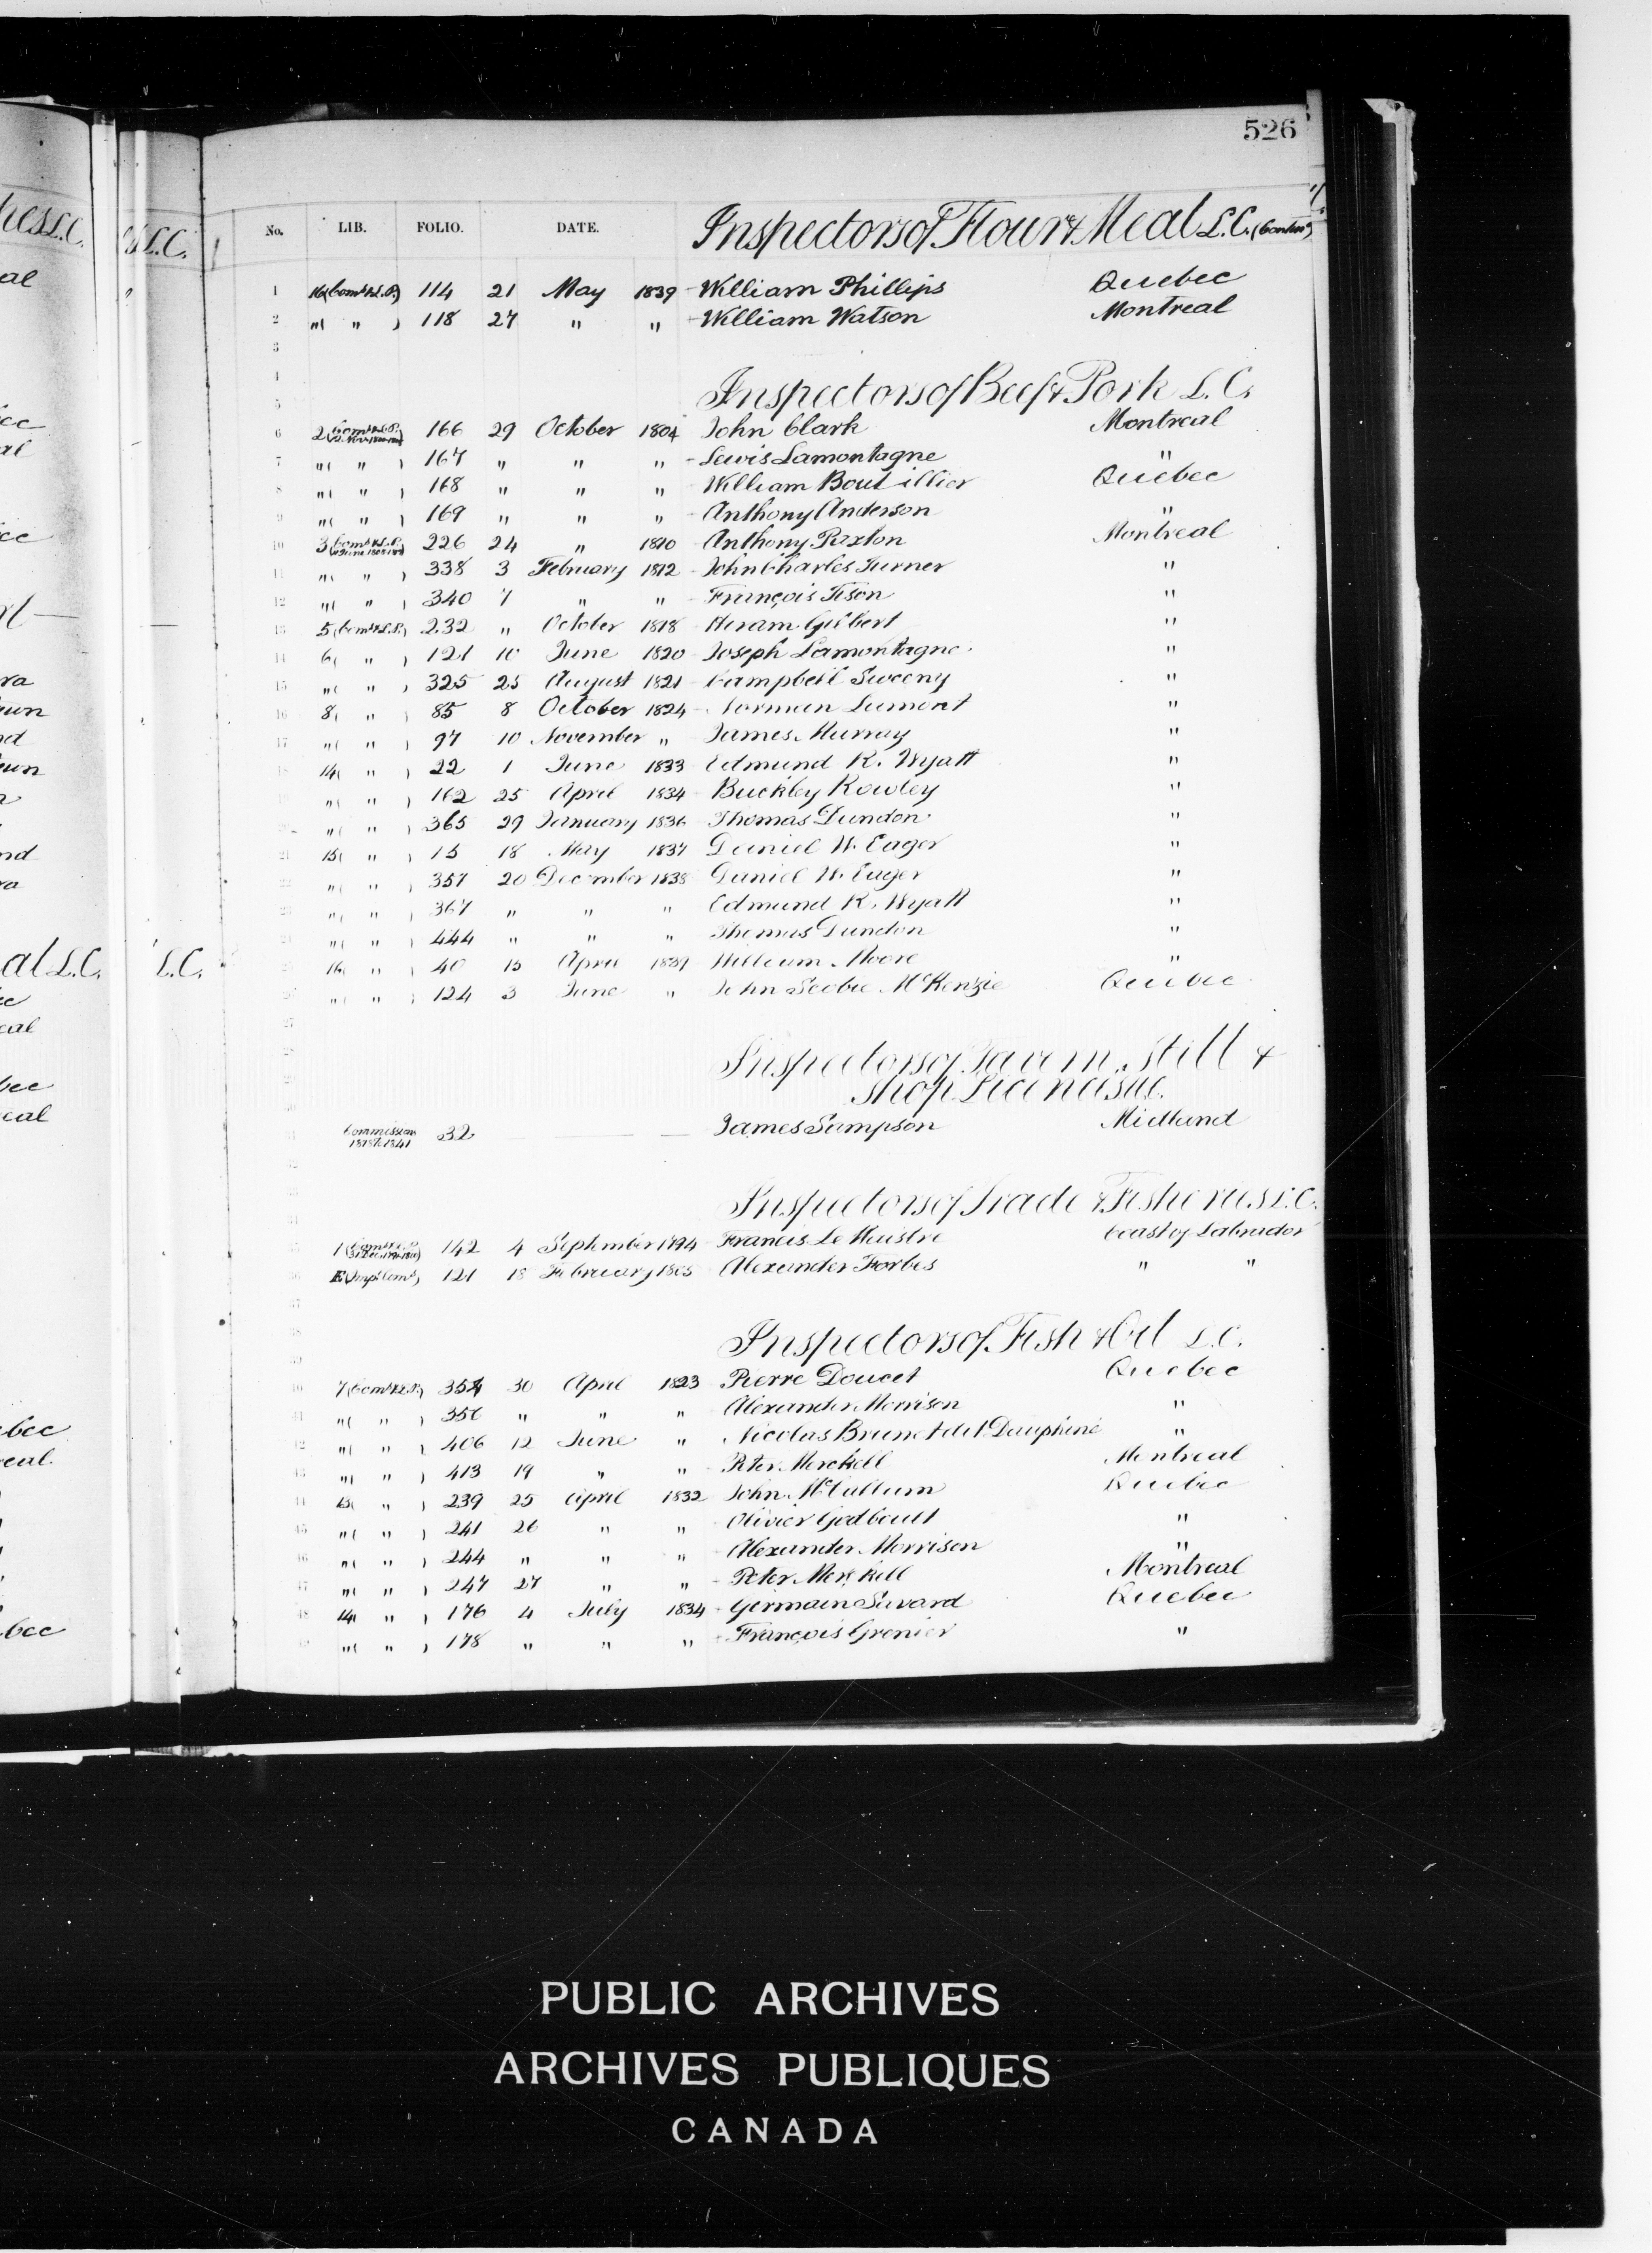 526
No. LIB. FOLIO. DATE. Inspectors of Flour & Meal L.C. (Contin<sup>d</sup>)
1 16 (Com<sup>s</sup> L.S.P.) 114 21 May 1839 William Phillips Quebec
2 " ( " ) 118 27 " " William Watson Montreal
3
4 Inspectors of Beef & Pork L.C.
5
6 2 166 29 October 1804 John Clark Montreal
7 " ( " ) 167 " " " Lewis Lamontagne "
8 " ( " ) 168 " " " William Boutillier Quebec
9 " ( " ) 169 " " " Anthony Anderson "
10 3 226 24 " 1810 Anthony Paxton Montreal
11 " ( " ) 338 3 February 1812 John Charles Turner "
12 " ( " ) 340 7 " " François Tison "
13 5 232 " October 1818 Hiram Gilbert "
14 6 ( " ) 121 10 June 1820 Joseph Lamontagne "
15 " ( " ) 325 25 August 1821 Campbell Sweeny "
16 8 ( " ) 85 8 October 1824 Norman Lamont "
17 " ( " ) 97 10 November " James Murray "
18 14 ( " ) 22 1 June 1833 Edmund R. Wyatt "
19 " ( " ) 162 25 April 1834 Buckley Rowley "
20 " ( " ) 365 29 January 1836 Thomas Dundon "
21 15 ( " ) 15 18 May 1837 Daniel W. Eager "
22 " ( " ) 357 20 December 1838 Daniel W. Eager "
23 " ( " ) 367 " " " Edmund R. Wyatt "
24 " ( " ) 444 " " " Thomas Dundon "
25 16 ( " ) 40 15 April 1839 William Moore "
26 " ( " ) 124 3 June " John Scobie McKenzie Quebec
27
28 Inspectors of Tavern, Still &
29 Shop Licences
30
31 Commissions 1818 to 1841 32 — — James Sampson Midland
32
33 Inspectors of Trade & Fisheries L.C.
34
35 1 142 4 September 1794 Francis Le Maistre Coast of Labrador
36 E (Imp<sup>l</sup> Com<sup>s</sup>) 121 18 February 1805 Alexander Forbes " "
37
38 Inspectors of Fish & Oil L.C.
39
40 7 354 30 April 1823 Pierre Doucet Quebec
41 " ( " ) 356 " " " Alexander Morrison "
42 " ( " ) 406 12 June " Nicolas Brunet dit Dauphiné "
43 " ( " ) 413 19 " " Peter Merckell Montreal
44 13 ( " ) 239 25 April 1832 John McCallum Quebec
45 " ( " ) 241 26 " " Olivier Godbout "
46 " ( " ) 244 " " " Alexander Morrison "
47 " ( " ) 247 27 " " Peter Merckell Montreal
48 14 ( " ) 176 4 July 1834 Germain Savard Quebec
49 " ( " ) 178 " " " François Grenier "
PUBLIC ARCHIVES
ARCHIVES PUBLIQUES
CANADA